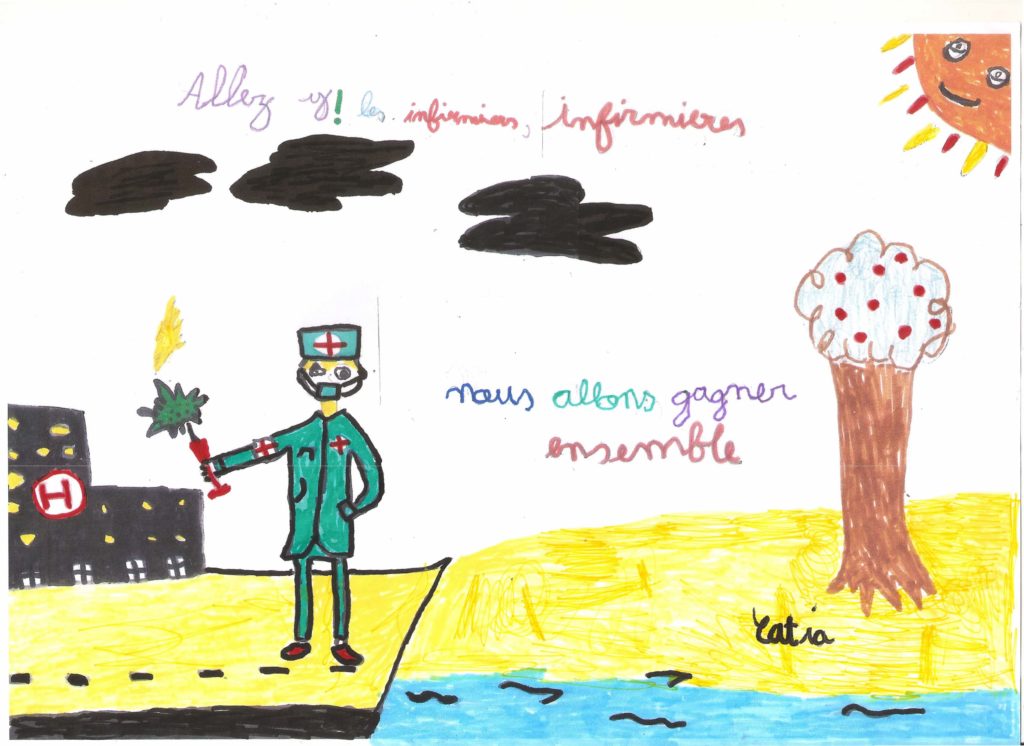 Allez y! les infirmiers, infirmieres
nous allons gagner
ensemble
H
Catia